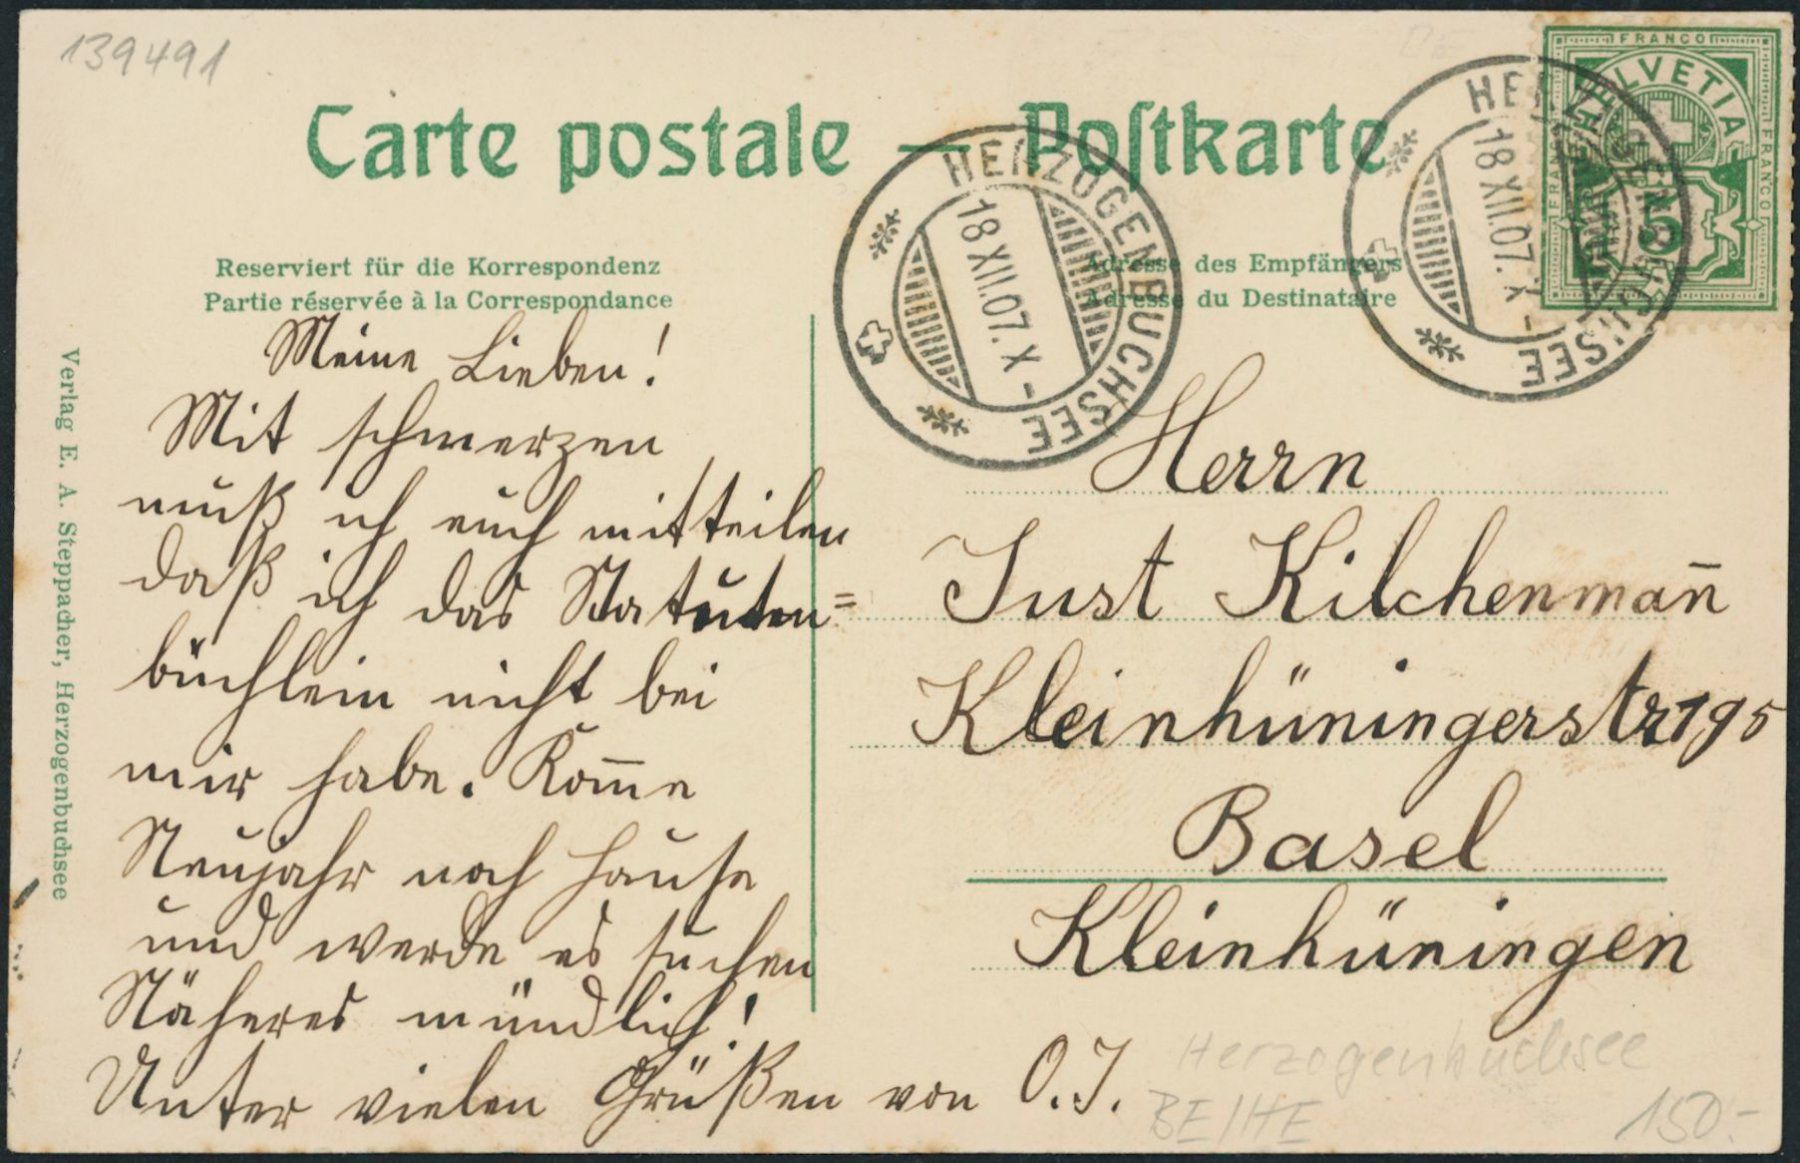 139491
Carte postale — Postkarte
FRANCO
HELVETIA
FRANCO
FRANCO
5
HERZOGENBUCHSEE
18 XII.07. X -
HERZOGENBUCHSEE
18 XII.07. X -
Reserviert für die Korrespondenz
Partie réservée à la Correspondance
Adresse des Empfängers
Adresse du Destinataire
Verlag E. A. Steppacher, Herzogenbuchsee
Meine Lieben!
Mit schmerzen
muß ich euch mitteilen
daß ich das Statuten=
büchlein nicht bei
mir habe. Kom̅e
Neujahr nach Hause
und werde es suchen
Näheres mündlich!
Unter vielen Grüßen von O. J.
Herrn
Just Kilchenman̄
Kleinhüningerstr 195
Basel
Kleinhüningen
Herzogenbuchsee
BE/HE
150.-